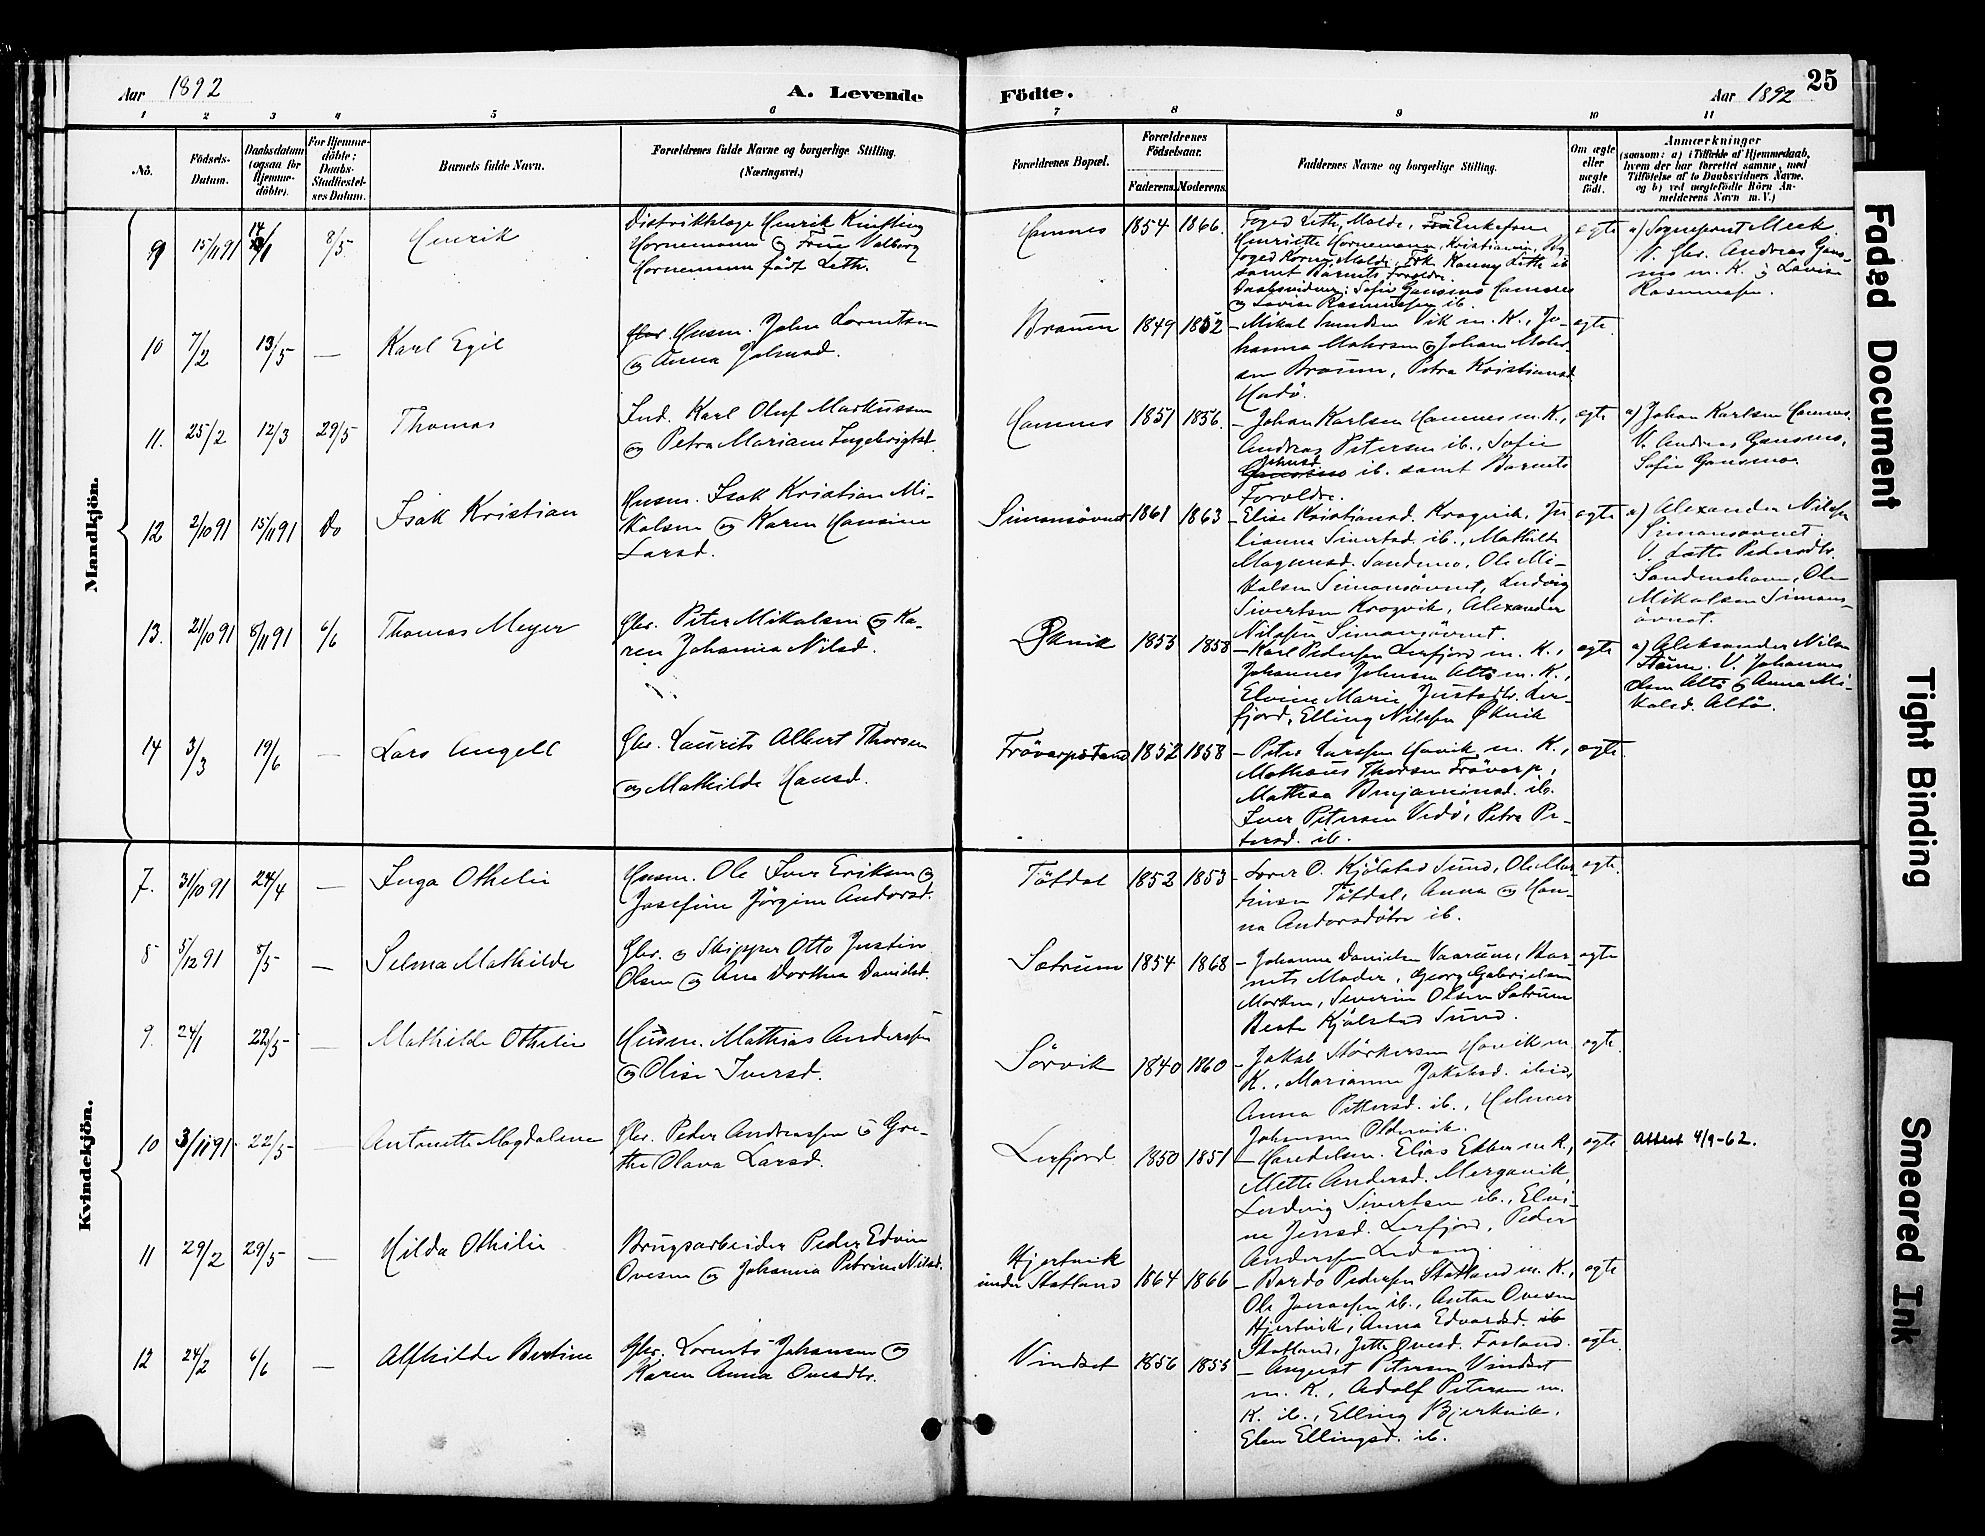 Aar 1892
A. Levende
Födte.
Aar 1892
25
1 2 3 4 5 6 7 8 9 10 11
No.
Födsels-
Datum.
Daabsdatum
(ogsaa for
Hjemme-
döbte).
For Hjemme-
döbte:
Daabs-
Stadfæstel-
ses Datum.
Barnets fulde Navn.
Forældrenes fulde Navne og borgerlige Stilling.
(Næringsvei.)
Forældrenes Bopæl.
Forældrenes
Födselsaar.
Faderens.
Moderens.
Faddernes Navne og borgerlige Stilling.
Om ægte
eller
uægte
födt.
Anmærkninger
(saasom: a) i Tilfælde af Hjemmedaab,
hvem der har forrettet samme, med
Tilföielse af to Daabsvidners Navne,
og b) ved uægtefödte Börn An-
melderens Navn m. V.)
Mandkjön.
9 15/11 91 8/5 Henrik
Distriktslæge Henrik
Hornemann og Frue Valborg
Hornemann födt Leth.
Hamnes 1854 1866.
Foged Leth, Molde, Enkefrue
Henriette Hornemann, Kristiania,
Foged Koren, Molde, Frk. Fanny Leth ib
samt Barnets Forældre.
Daabsvidner: Sofie Gansmo Hamnes
og Lovise Rasmussen ib.
ægte
a) Sogneprest Meek.
V. Gbr. Andreas Gans-
mo m. K. og Lovise
Rasmussen.
10 7/2 13/5 — Karl Egil
Husm. John Lorntsen
og Anna Johnsd.
Braum 1849 1852
— Mikal Svendsen Vik m. K., Jo-
hanna Mathisen og Johan
Braum, Petra Kristiansd.
Hodö.
ægte.
11. 25/2 12/3 29/5 Thomas
Ind. Karl Oluf Markussen
og Petra Mariane Ingebrigtsd.
Hamnes 1851 1856.
— Johan Karlsen Hamnes m. K.,
Andreas Petersen ib., Sofie
Johnsd ib. samt Barnets
Forældre.
ægte
a) Johan Karlsen Hamnes.
V. Andreas Gansmo,
Sofie Gansmo.
12 2/10 91 15/11 91 Do Isak Kristian
Husm. Isak Kristian Mi-
kalsen og Karen Hansine
Larsd.
Simonsövnet 1861 1863
— Elise Kristiansd. Krogvik, Ju-
lianna Sivertsd. ib., Mathilde
Magnusd. Sandmo, Ole Mi-
kalsen Simonsövnet, Ludvig
Sivertsen Krogvik, Alexander
Nilssen Simonsövnet.
ægte
a) Alexander Nilssen
Simonsövnet.
V. Jette Pedersdtr.
Sandenshavn, Ole
Mikalsen Simons-
övnet.
13. 21/10 91 8/11 91 6/6 Thomas Meyer
Gbr. Peter Mikalsen og Ka-
ren Johanna Nilsd.
Økvik 1853 1858
— Karl Pedersen Lerfjord m. K.,
Johannes Johnsen Altö m. K.,
Elvine Marie Justsdtr. Ler-
fjord, Elling Nilssen Økvik
ægte
a) Aleksander Nilsen
V. Johannes
Olsen Altö og Anna Mi-
kalsd. Altö.
14 3/3 19/6 — Lars Angell
Gbr. Laurits Albert Thorsen
og Mathilde Hansd.
Frövarpstand 1852 1858
— Peter Larssen Havik m. K.,
Mathæus Thorsen Frövarp,
Mathea Benjaminsd. ib.
Iver Petersen Vedö, Petra Pe-
tersd. ib.
ægte.
Kvindekjön.
7. 31/10 91 24/4 — Inga Othelie
Husm. Ole Iver Eriksen og
Josefine Jörgine Andorsd.
Tötdal 1852 1853
— Lover O. Kjölstad Sund, Ole Mar-
tinsen Tötdal, Anna og Han-
na Andorsdötre ib.
ægte.
8 5/12 91 8/5 — Selma Mathilde
Gbr. og Skipper Otto Justin
Olsen og Ane Dorthea Danielsd.
Satrum 1854 1868
— Johanna Danielsen Vaarum, Bar-
nets Moder, Georg Gabrielsen
Morken, Severin Olsen Satrum
Berte Kjölstad Sund.
ægte
9. 24/1 22/5 — Mathilde Othelie
Husm. Mathias Anderssen
og Olise Iversd.
Sörvik 1840 1860
— Jakob Störkersen Havik m
K., Marianne Jakobsd. ibid,
Anna Pettersd. ib., Helmer
Johansen Oldervik.
ægte.
10 3/11 91. 22/5 — Antonette Magdalene
Gbr. Peder Andreassen og Gre-
the Olava Larsd.
Lerfjord. 1850 1851
— Handelsm. Elias Ekker m K.,
Mette Andersd. Merganvik,
Ludvig Sivertsen ib., Elvi-
ne Jensd. Lerfjord, Peder
Anderssen Ledang.
ægte
Attest 4/9-62.
11 29/2 29/5 — Hilda Othilie
Brugsarbeider Peder Edvin
Ovesen og Johanna Petrine Nilsd.
Hjertvik
under Statland 1864 1866
— Bardo Pedersen Statland m. K.,
Ole Jonassen ib., Anton Ovesen
Hjertvik, Anna Edvardsd. ib
Statland, Jette Ovesd. Fosland.
ægte
12 24/2 6/6 — Alfhilde Bertine
Gbr. Lornts Johansen og
Karen Anna Ovesdtr.
Vindset 1856 1855
— August Petersen Vindset
m. K., Adolf Petersen m.
K. ib., Elling Bjerkvik,
Elen Ellingsd. ib.
ægte.
Faded Document
Tight Binding
Smeared Ink